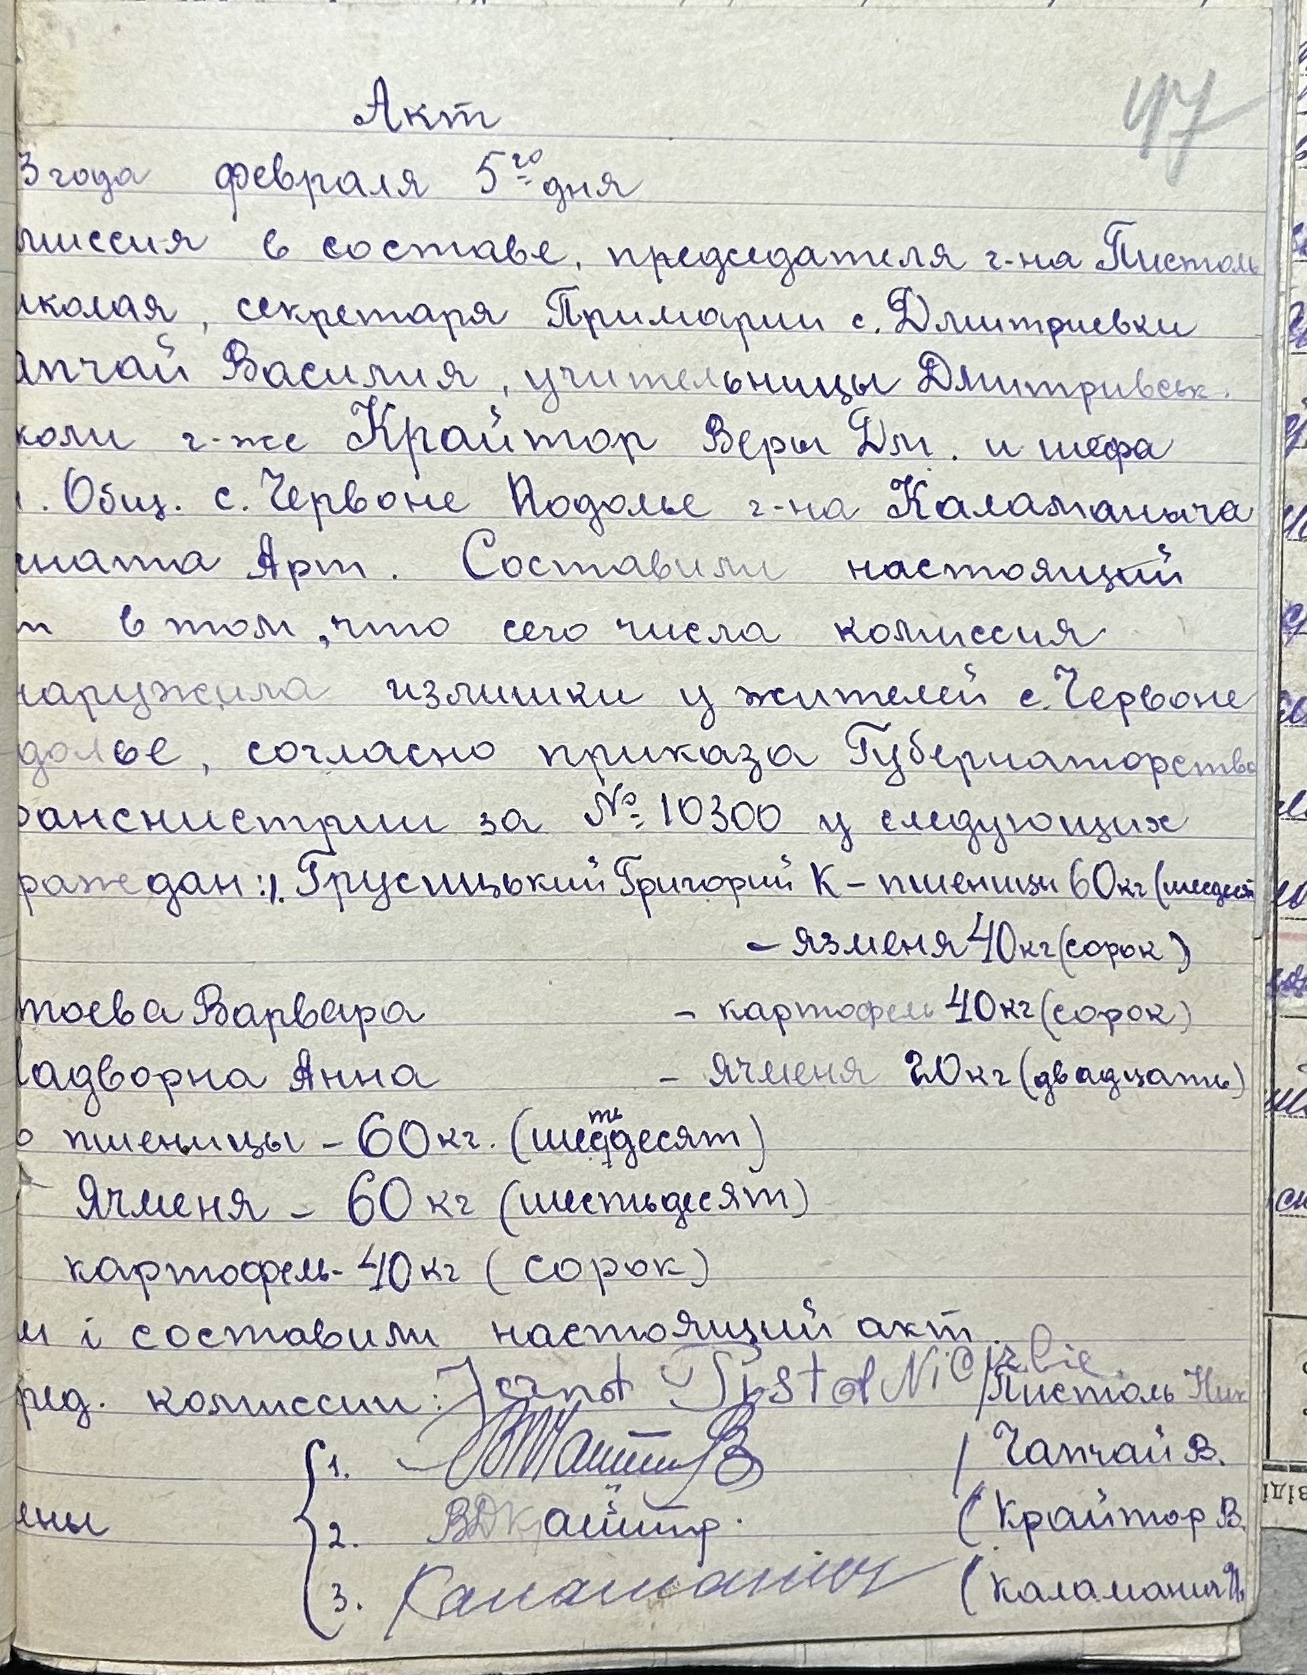 47
Акт
3 года февраля 5го дня
миссия в составе, председателя г-на Пистоль
иколая, секретаря Примарии с. Дмитриевки
апчай Василия, учительницы Дмитривськ.
коли г-же Крайтор Веры Дм. и шефа
. Общ. с. Червоне Подолье г-на Каламаныча
ината Арт. Составили настоящий
т в том, что сего числа комиссия
наружила излишки у жителей с. Червоне
долье, согласно приказа Губернаторства
ранснистрии за № 10300 у следующих
раждан: 1. Грусицький Григорий К – пшеницы 60 кг (шесдесят
– язменя 40 кг (сорок)
тоева Варвара – картофель 40 кг (сорок)
Надворна Анна – ячменя 20 кг (двадцать)
о пшеницы – 60 кг. (шестьдесят)
Ячменя – 60 кг (шестьдесят)
картофель - 40 кг (сорок)
м і составили настоящий акт.
ред. комиссии: Pistol /Пистоль Ник
1. / Чапчай В.
ены 2. ВДКрайтор. (Крайтор В.
3. Каламанич (Каламанич И.